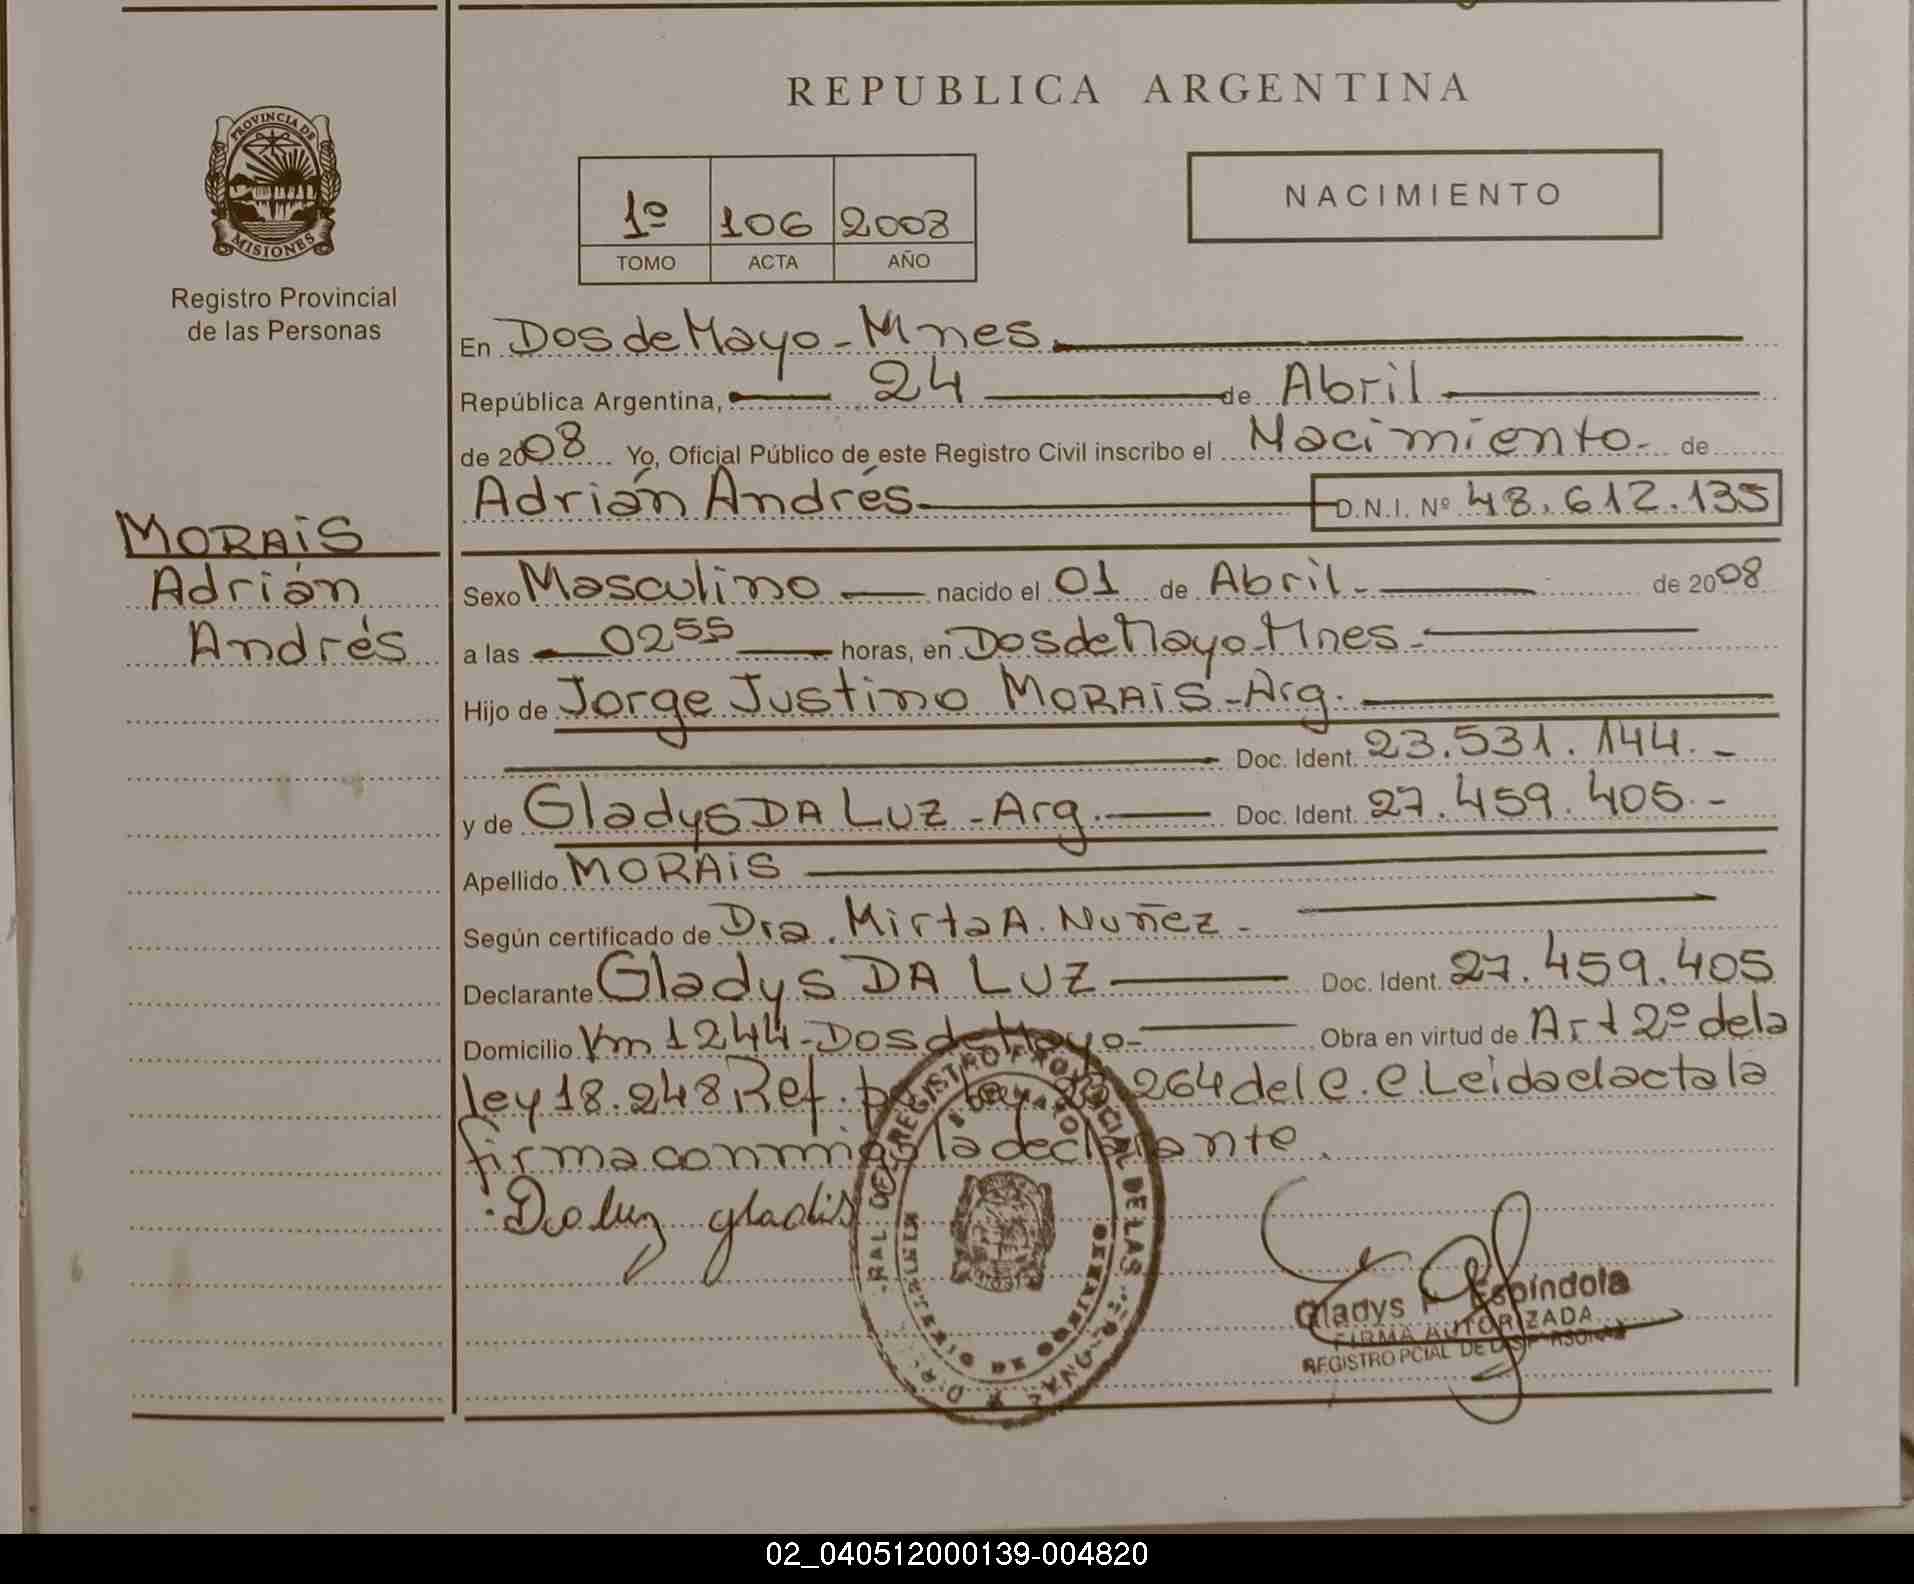 REPUBLICA ARGENTINA
PROVINCIA DE
MISIONES
Registro Provincial
de las Personas
1º 106 2008
TOMO ACTA AÑO
NACIMIENTO
MORAiS
Adrián
Andrés
En Dos de Mayo - Mnes.
República Argentina, 24 de Abril
de 2008 Yo, Oficial Público de este Registro Civil inscribo el Nacimiento - de
Adrián Andrés D.N.I. Nº 48.612.135
Sexo Masculino nacido el 01 de Abril - de 2008
a las 02 55 horas, en Dos de Mayo - Mnes -
Hijo de Jorge Justino MORAiS - Arg.
Doc. Ident. 23.531.144. -
y de Gladys DA LUZ - Arg. Doc. Ident. 27.459.405. -
Apellido MORAiS
Según certificado de Dra. Mirta A. Nuñez -
Declarante Gladys DA LUZ Doc. Ident. 27.459.405
Domicilio Km 1244 - Dos de Mayo - Obra en virtud de Art 2º de la
ley 18.248 Ref. por ley 23.264 del C.C Leida el acta la
firma conmigo la declarante.
Da luz gladis
Gladys F. Espíndola
FIRMA AUTORIZADA
REGISTRO PCIAL DE LAS PERSONAS
02_040512000139-004820